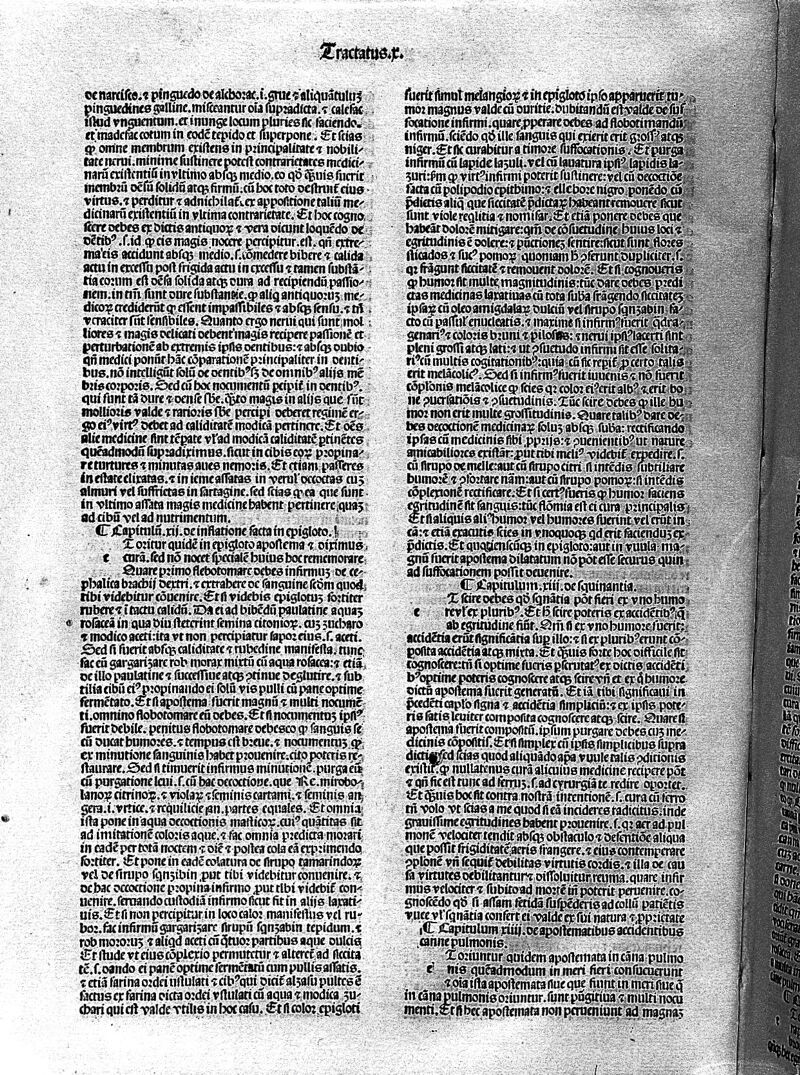 Tractatus.x.
de narcisco. ⁊ pinguedo de alchorac .i. grue ⁊ aliquātulūz
pinguedines galline. misceantur oīa supradicta. ⁊ calefac
istud vnguentum. et inunge locum pluries sic faciendo.
et madefac cotum in eodē tepido et superpone. Et scias
ꝙ omine membrum existens in principalitate ⁊ nobili-
tate nerui. minime sustinere potest contrarietates medici-
narū existentiū in vltimo absqꝫ medio. eo qꝺ̄ quis fuerit
membrū oēsū solidū atqꝫ firmū. cū hoc toto destruit̄ eius
virtus. ⁊ perditur ⁊ adnichilat̄. ex appositione taliū me-
dicinarū existentiū in vltima contrarietate. Et hoc cogno
scere debes ex dictis antiquoꝝ ⁊ vera dicunt loquēdo de
dētibꝰ .s. id ꝙ eis magis nocere percipitur. est. qn̄ extre-
ma eis accidunt absqꝫ medio .s. comedere bibere ⁊ calida
actu in excessu post frigida actu in excessu ⁊ tamen substā-
tia eorum est oēsa solida atqꝫ dura ad recipiendū passio-
nem. in tm̄. sunt dure substantie. ꝙ aliq̄ antiquoꝝ me-
dicoꝝ crediderūt ꝙ essent impassibiles ⁊ absqꝫ sensu. ⁊ tn̄
veraciter sūt sensibiles. Quanto ergo nerui qui sunt mol
liores ⁊ magis delicati debent magis recipere passionē et
perturbationē ab extremis ipsis dentibus: ⁊ absqꝫ dubio
qn̄ medici ponūt hāc cōparationē principaliter in denti-
bus. nō intelligūt solū de dentibꝰ sꝫ de omnibꝰ alijs mē
bris corporis. Sed cū hoc nocumentū pcipit̄ in dentibꝰ.
qui sunt tā dure ⁊ dense sb̄e. q̄to magis in alijs que sūt
mollioris valde ⁊ rarioris sb̄e percipi deberet regimē er-
go eiꝰ virtꝰ debet ad caliditatē modicā pertinere. Et oēs
alie medicine sint tēpate vl̓ ad modicā caliditatē ptinētes
quēadmodū supradiximus. sicut in cibis eoꝝ propina-
re turtures ⁊ minutas aues nemoris. Et etiam passeres
in estate elixatas. ⁊ in ieme assatas in veruꝭ decoctas cuꝫ
almuri vel suffrictas in sartagine. sed scias ꝙ ea que sunt
in vltimo assata magis medicine habent pertinere. quaꝫ
ad cibū vel ad nutrimentum.
¶ Capitulū .xij. de inflatione facta in epigloto.
Toritur quidē in epigloto apostema ⁊ diximus
e curā. sed nō nocet speciale huius hoc rememorare
Quare primo flebotomare debes infirmuꝫ de ce-
phalica brachij dextri. ⁊ extrahere de sanguine scd̓m quod
tibi videbitur cōuenire. Et si videbis epiglotuꝫ fortiter
rubere ⁊ i tactu calidū. Da ei ad bibēdū paulatine aquaꝫ
rosaceā in qua diu steterint semina citonioꝝ. cuꝫ zucharo
⁊ modico aceti: ita vt non percipiatur sapor eius .s. aceti.
Sed si fuerit absqꝫ caliditate ⁊ rubedine manifesta. tunc
fac eū gargarizare rob morax mixtū cū aqua rosacea: ⁊ etiā
de illo paulatine ⁊ successiue atqꝫ ꝯtinue deglutire. ⁊ sub-
tilia cibū eiꝰ propinando ei solū vis pulli cū pane optime
fermētato. Et si apostema fuerit magnū ⁊ multi nocumē
ti. omnino flobotomare eū debes. Et si nocumentuꝫ ipsiꝰ
fuerit debile. penitus flobotomare debesco ꝙ sanguis se
cū ducat humores. ⁊ tempus est breue. ⁊ nocumentuꝫ ꝙ
ex minutione sanguinis habet prouenire. cito poteris re-
staurare. Sed si timuerit infirmus minutionē. purga eū
cū purgatione leui .s. cū hac decoctione. que Rc. mirobo-
lanoꝝ citrinoꝝ. ⁊ violaꝝ ⁊ seminis cartami. ⁊ seminis an
gera .i. vrtice. ⁊ requilicie an̄. partes equales. Et omnia
ista pone in aqua decoctionis masticoꝝ. cuiꝰ quātitas sit
ad imitationē coloris aque. ⁊ fac omnia predicta morari
in eadē per totā noctem ⁊ oīē ⁊ postea cola eā exprimendo
fortiter. Et pone in eadē colatura de sirupo tamarindoꝝ
vel de sirupo sqn̄zibin put tibi videbitur conuenire. ⁊
de hac decoctione propina infirmo put tibi videbit̄ con-
uenire. seruando custodiā infirmo sicut fit in alijs laxati-
uis. Et si non percipitur in loco calor manifestus vel ru-
bor. fac infirmū gargarizare sirupū sqn̄zabin tepidum. ⁊
rob mororuꝫ ⁊ aliqd̓ aceti cū q̄tuoꝝ partibus aque dulcis
Et stude vt eius cōplexio permutetur ⁊ alteret̄ ad siccita
tē .s. dando ei panē optime fermētatū cum pullis assatis.
⁊ etiā farina ordei vstulati ⁊ cibꝰ qui dicit̄ alzasu pultes ē
factus ex farina dicta ordei vstulati cū aqua ⁊ modica zu-
chari qui est valde vtilis in hoc casu. Et si color epigloti
fuerit simul melangioꝝ ⁊ in epigloto ipso apparuerit tu-
mor magnus valde cū duritie. dubitandū est valde de suf
focatione infirmi. quare pperare debes ad flobotimandū
infirmū. sciēdo qꝺ̄ ille sanguis qui exierit erit grossꝰ atqꝫ
niger. Et sic curabitur a timore suffocationis. Et purga
infirmū cū lapide lazuli. vel cū lauatura ipsiꝰ lapidis la-
zuri: s̄m ꝙ virtꝰ infirmi poterit sustinere: vel cū decoctiōe
facta cū polipodio epithimo: ⁊ elleboro nigro. ponēdo cū
p̄dictis aliq̄ que siccitatē p̄dictaꝝ habeant remouere sicut
sunt viole reqlitia ⁊ nomisaꝝ. Et etiā ponere debes que
habeāt dolorē mitigare: qm̄ de cōsuetudine huius loci ⁊
egritudinis ē dolere: ⁊ pūctiōeꝫ sentire: sicut sunt flores
sticados ⁊ sucꝰ pomoꝝ quoniam hꝰ serunt dupliciter .s.
qꝛ frāgunt siccitatē ⁊ remouent dolorē. Et si cognoueris
ꝙ humor sit multe magnitudinis: tūc dare debes predi
ctas medicinas laxatiuas cū tota suba frāgēdo siccitateꝫ
ipsaꝝ cū oleo amigdalaꝝ dulciū vel sirupo sqn̄zabin fa-
cto cū passulꝭ enucleatis. ⁊ maxime si infirmꝰ fuerit qdra-
genariꝰ ⁊ coloris bruni ⁊ pilosus: ⁊ nerui ipsiꝰ lacerti sint
pleni grossi atqꝫ lati: ⁊ vt ꝯsuetudo infirmi sit esse solita-
riꝰ cū multis cogitationibꝰ: quia cū sit repit̄ ꝓ certo talis
erit melācolicꝰ. Sed si infirmꝰ fuerit iuuenis ⁊ nō fuerit
cōplōnis melācolice ꝙ scies qꝛ color eiꝰ erit albꝰ ⁊ erit bo
ne ꝯuersatiōis ⁊ ꝯsuetudinis. Tūc scire debes ꝙ ille hu
mor non erit multe grossitudinis. Quare talibꝰ dare de-
bes decoctionē medicinaꝝ soluꝫ absqꝫ suba: rectificando
ipsas cū medicinis sibi pprijs: ⁊ ꝯuenientibꝰ vt nature
amicabiliores existāt: put tibi meliꝰ videbit̄ expedire .s.
cū sirupo de melle: aut cū sirupo citri si intēdis subtiliare
humorē ⁊ ꝯfortare nām: aut cū sirupo pomoꝝ: si intēdis
cōplexionē rectificare. Et si certꝰ fueris ꝙ humor faciens
egritudinē sit sanguis: tūc flōmia est ei cura principalis
Et si aliquis aliꝰ humor vel humores fuerint vel erūt in
cā: ⁊ etiā exacutis scies in vnoquoqꝫ qd̓ erit faciendū ex
p̄dictis. Et quotienscūqꝫ in epigloto: aut in vuula ma-
gnū fuerit apostema dilatatum nō pōt esse securus quin
ad suffocationem possit deuenire.
¶ Capitulum .xiij. de squinantia.
T scire debes qꝺ̄ sq̄nātia pōt fieri ex vno humo
e re vꝉ ex pluribꝰ. Et h̄ scire poteris ex accidētibꝰ q̄
ab egritudine fiūt. Qm̄ si ex vno humore fuerit:
accidētia erūt significātia sup illo: ⁊ si ex pluribꝰ erunt cō-
posita accidētia atqꝫ mixta. Et q̄uis forte hoc difficile sit
cognoscere: tn̄ si optime fueris pscrutatꝰ ex dictis accidēti
bꝰ optime poteris cognoscere atqꝫ scire vn̄ et ex q̄ humore
dictū apostema fuerit generatū. Et iā tibi significaui in
p̄cedēti caplo signa ⁊ accidētia simpliciū: ⁊ ex ipsis pote-
ris satis leuiter composita cognoscere atqꝫ scire. Quare si
apostema fuerit compositū. ipsum purgare debes cuꝫ me-
dicinis cōpositis. Et si simplex cū ipsis simplicibus supra
dictis sed scias quod aliquādo ap̄a vuule talis ꝯditionis
existit. ꝙ nullatenus cura alicuius medicine recipere pōt
⁊ q̄n fic est tunc ad ferruꝫ .s. ad cyrurgiā te redire oportet.
Et q̄uis hoc sit contra nostrā intentionē .s. cura cū ferro
tn̄ volo vt scias a me quod si eā incideres radicitus. inde
grauissime egritudines habent prouenire .s. qꝛ aer ad pul
monē velociter tendit absqꝫ obstaculo ⁊ desentiōe aliqua
que possit frigiditatē aeris frangere. ⁊ eius contemperare
ꝯplonē. vn̄ sequit̄ debilitas virtutis cordis. ⁊ illa de cau
sa virtutes debilitantur ⁊ dissoluitur reuma. quare infir
mus velociter ⁊ subito ad mortē in poterit peruenire. co-
gnoscēdo qꝺ̄ si assam fetidā suspēderis ad collū patiētis
vuee vl̓ sq̄nātia confert ei valde ex sui natura ⁊ pprietate
¶ Capitulum .xiiij. de apostematibus accidentibus
canne pulmonis.
Toriuntur quidem apostemata in cāna pulmo
e nis quēadmodum in meri fieri consueuerunt
⁊ oīa ista apostemata siue que fiunt in meri siue q̄
in cāna pulmonis oriuntur. sunt pūgitiua ⁊ multi nocu
menti. Et si hec apostemata non perueniunt ad magnaꝫ